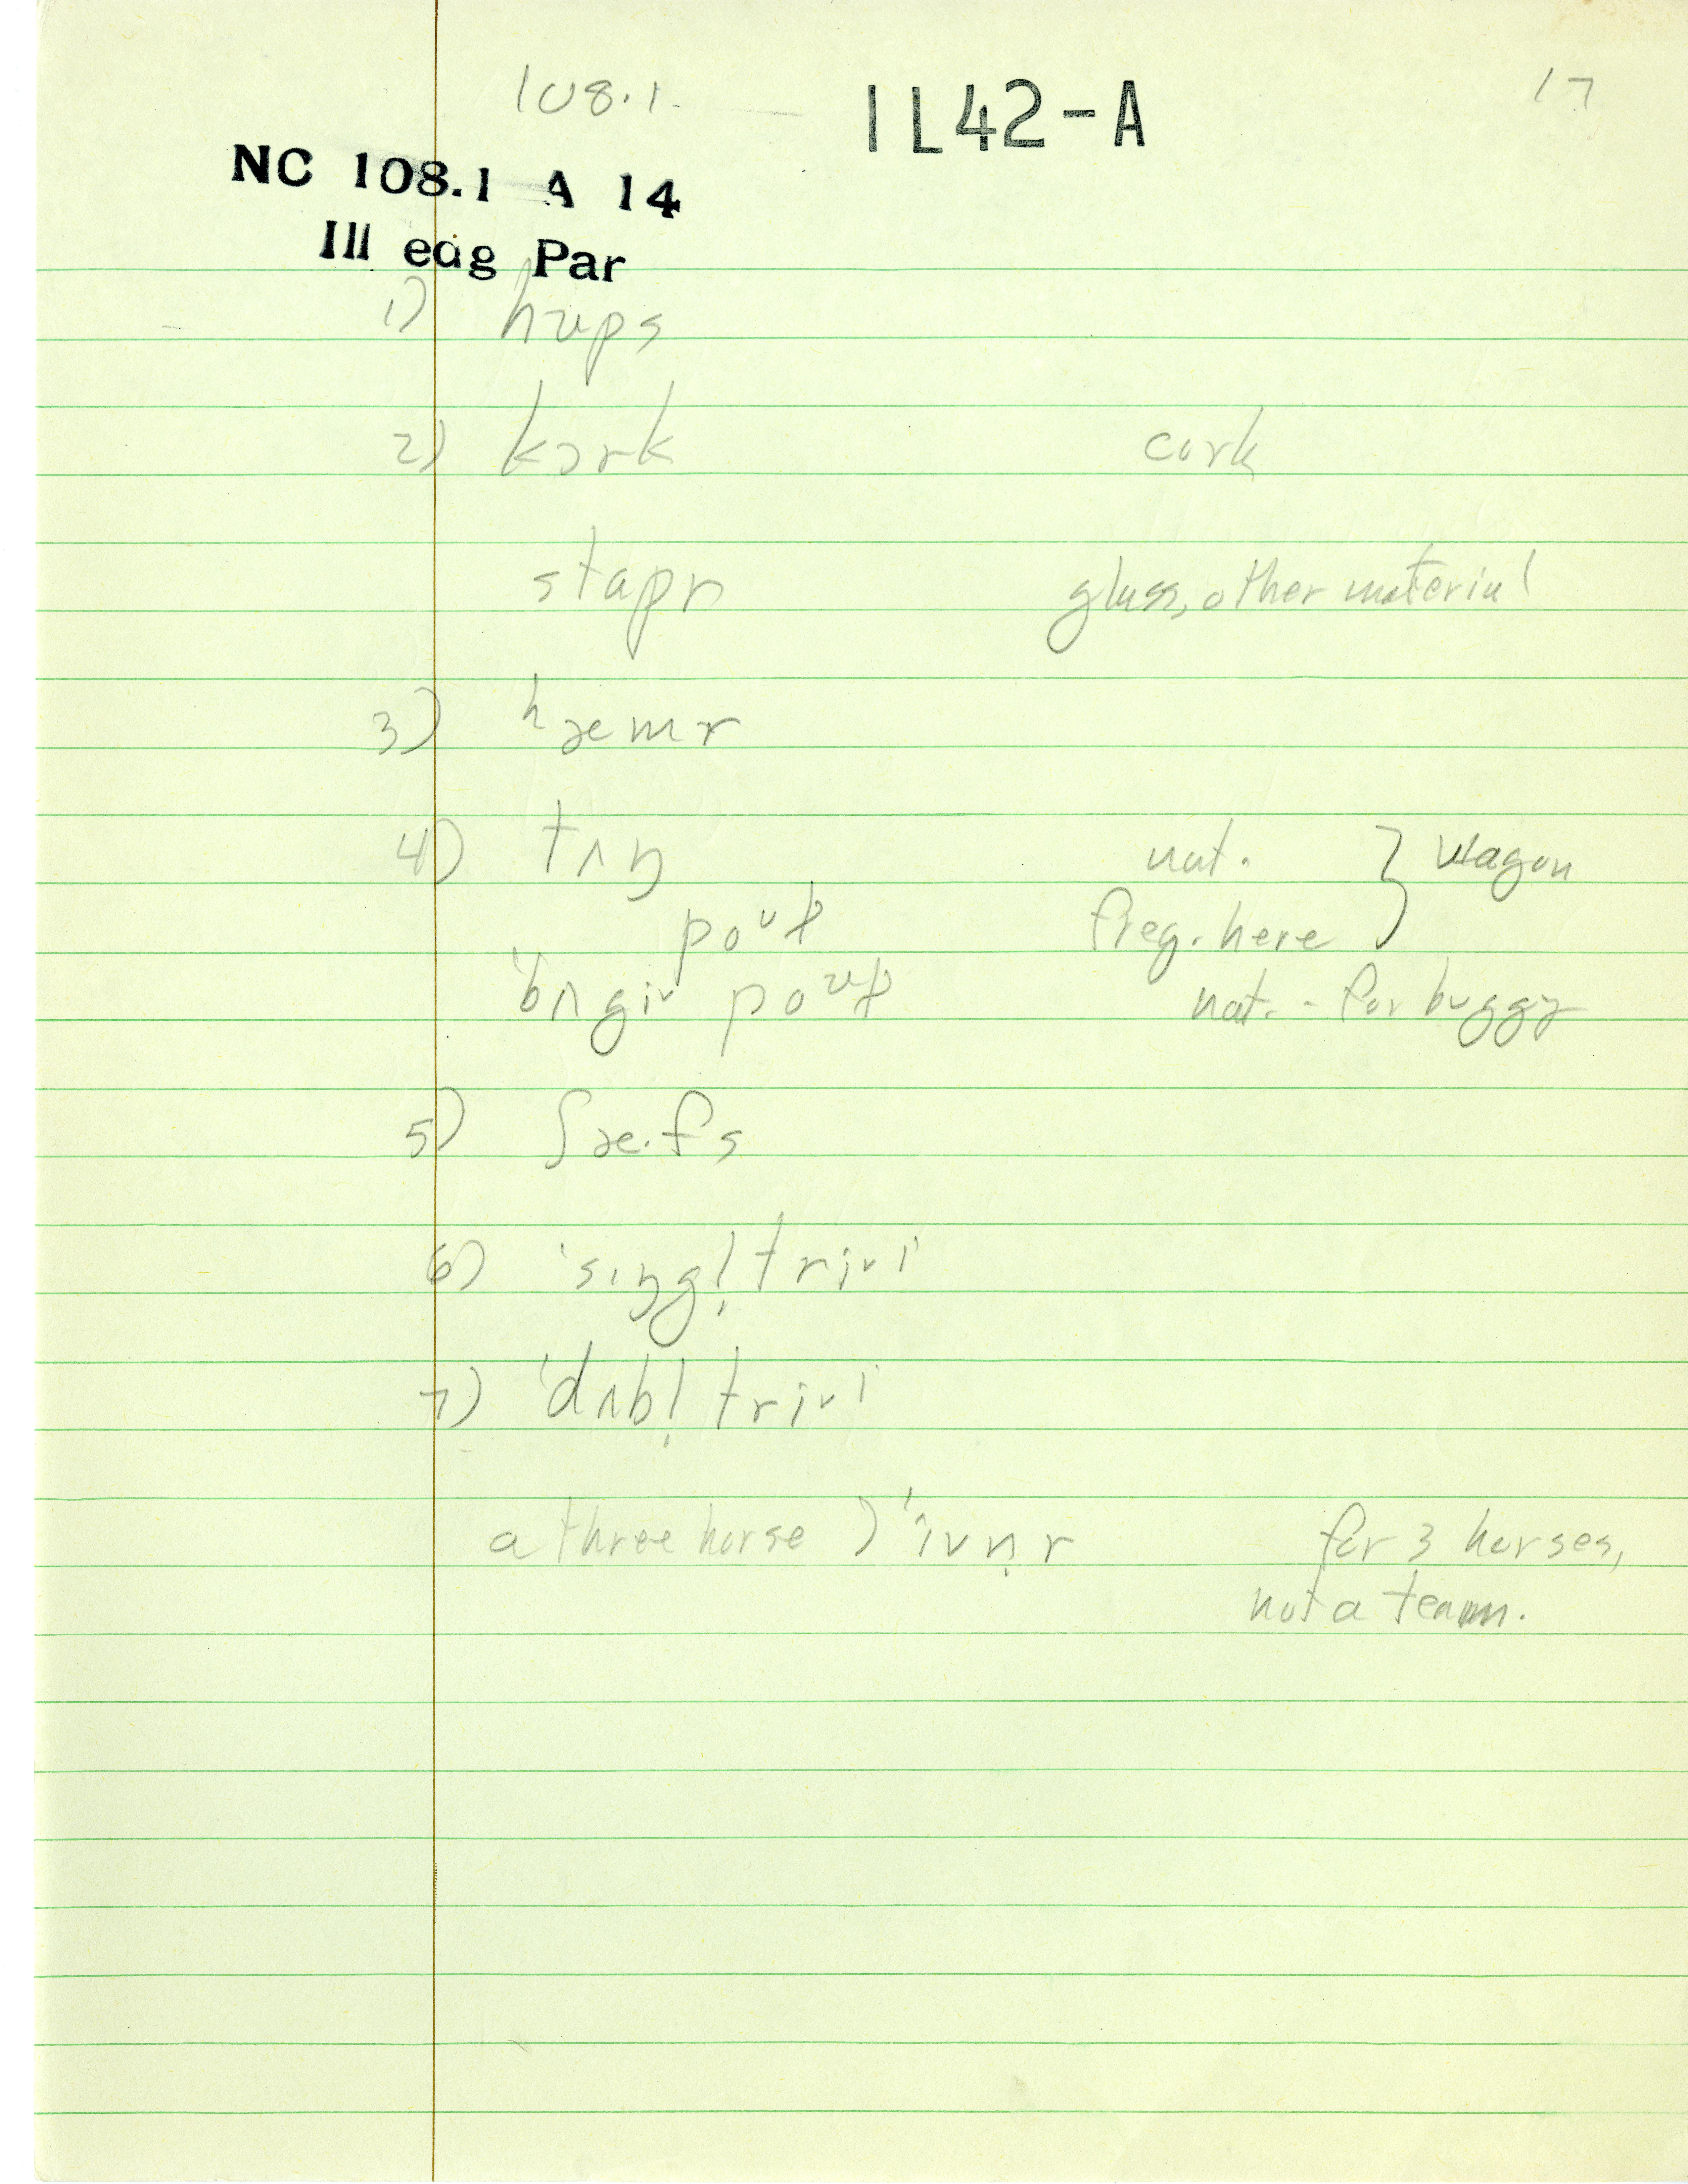 108.1. IL42-A 17
NC 108.1 A 14
Ill edg Par
1) hups
2) kɔrk cork
stapr glass, other material
3) hæmr
4) tʌŋ nat. } wagon
poᴜɫ freq. here
'bʌgiᵛ poᴜɫ nat. - for buggy
5) ʃæ.fs
6) 'sɪŋgl̩ triᵛi
7) 'dʌbl̩ triᵛi
a three horse for 3 horses,
not a team.